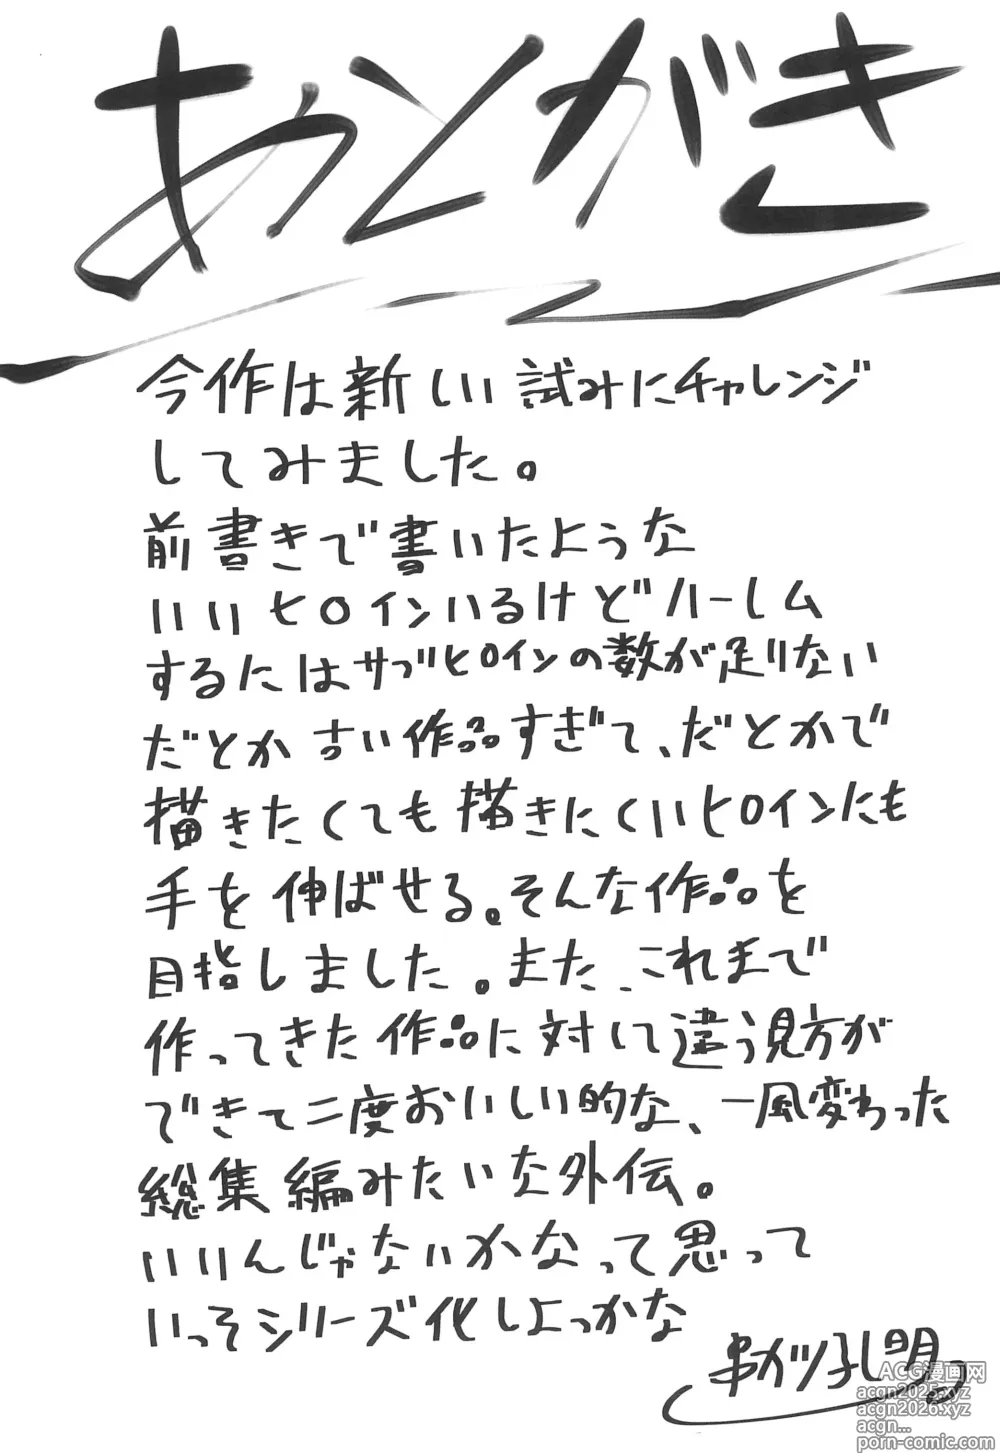 あとがき
今作は新しい試みにチャレンジ
してみました。
前書きで書いたような
いいヒロインいるけどハーレム
するにはサブヒロインの数が足りない
だとか古い作品すぎて、だとかで
描きたくても描きにくいヒロインにも
手を伸ばせる。そんな作品を
目指しました。また、これまで
作ってきた作品に対して違う見方が
できて二度おいしい的な、一風変わった
総集編みたいな外伝。
いいんじゃないかなって思って
いっそシリーズ化しよっかな
串カツ孔明
ACG漫画网
acgn2025.xyz
acgn2026.xyz
acgn...
porn-comic.com